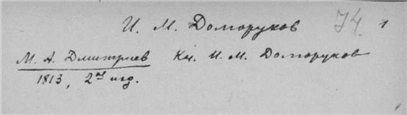 И. М. Долоруков 74. 1
М. А. Дмитриев Кн. И. М. Долоруков
1813, 2ое изд.